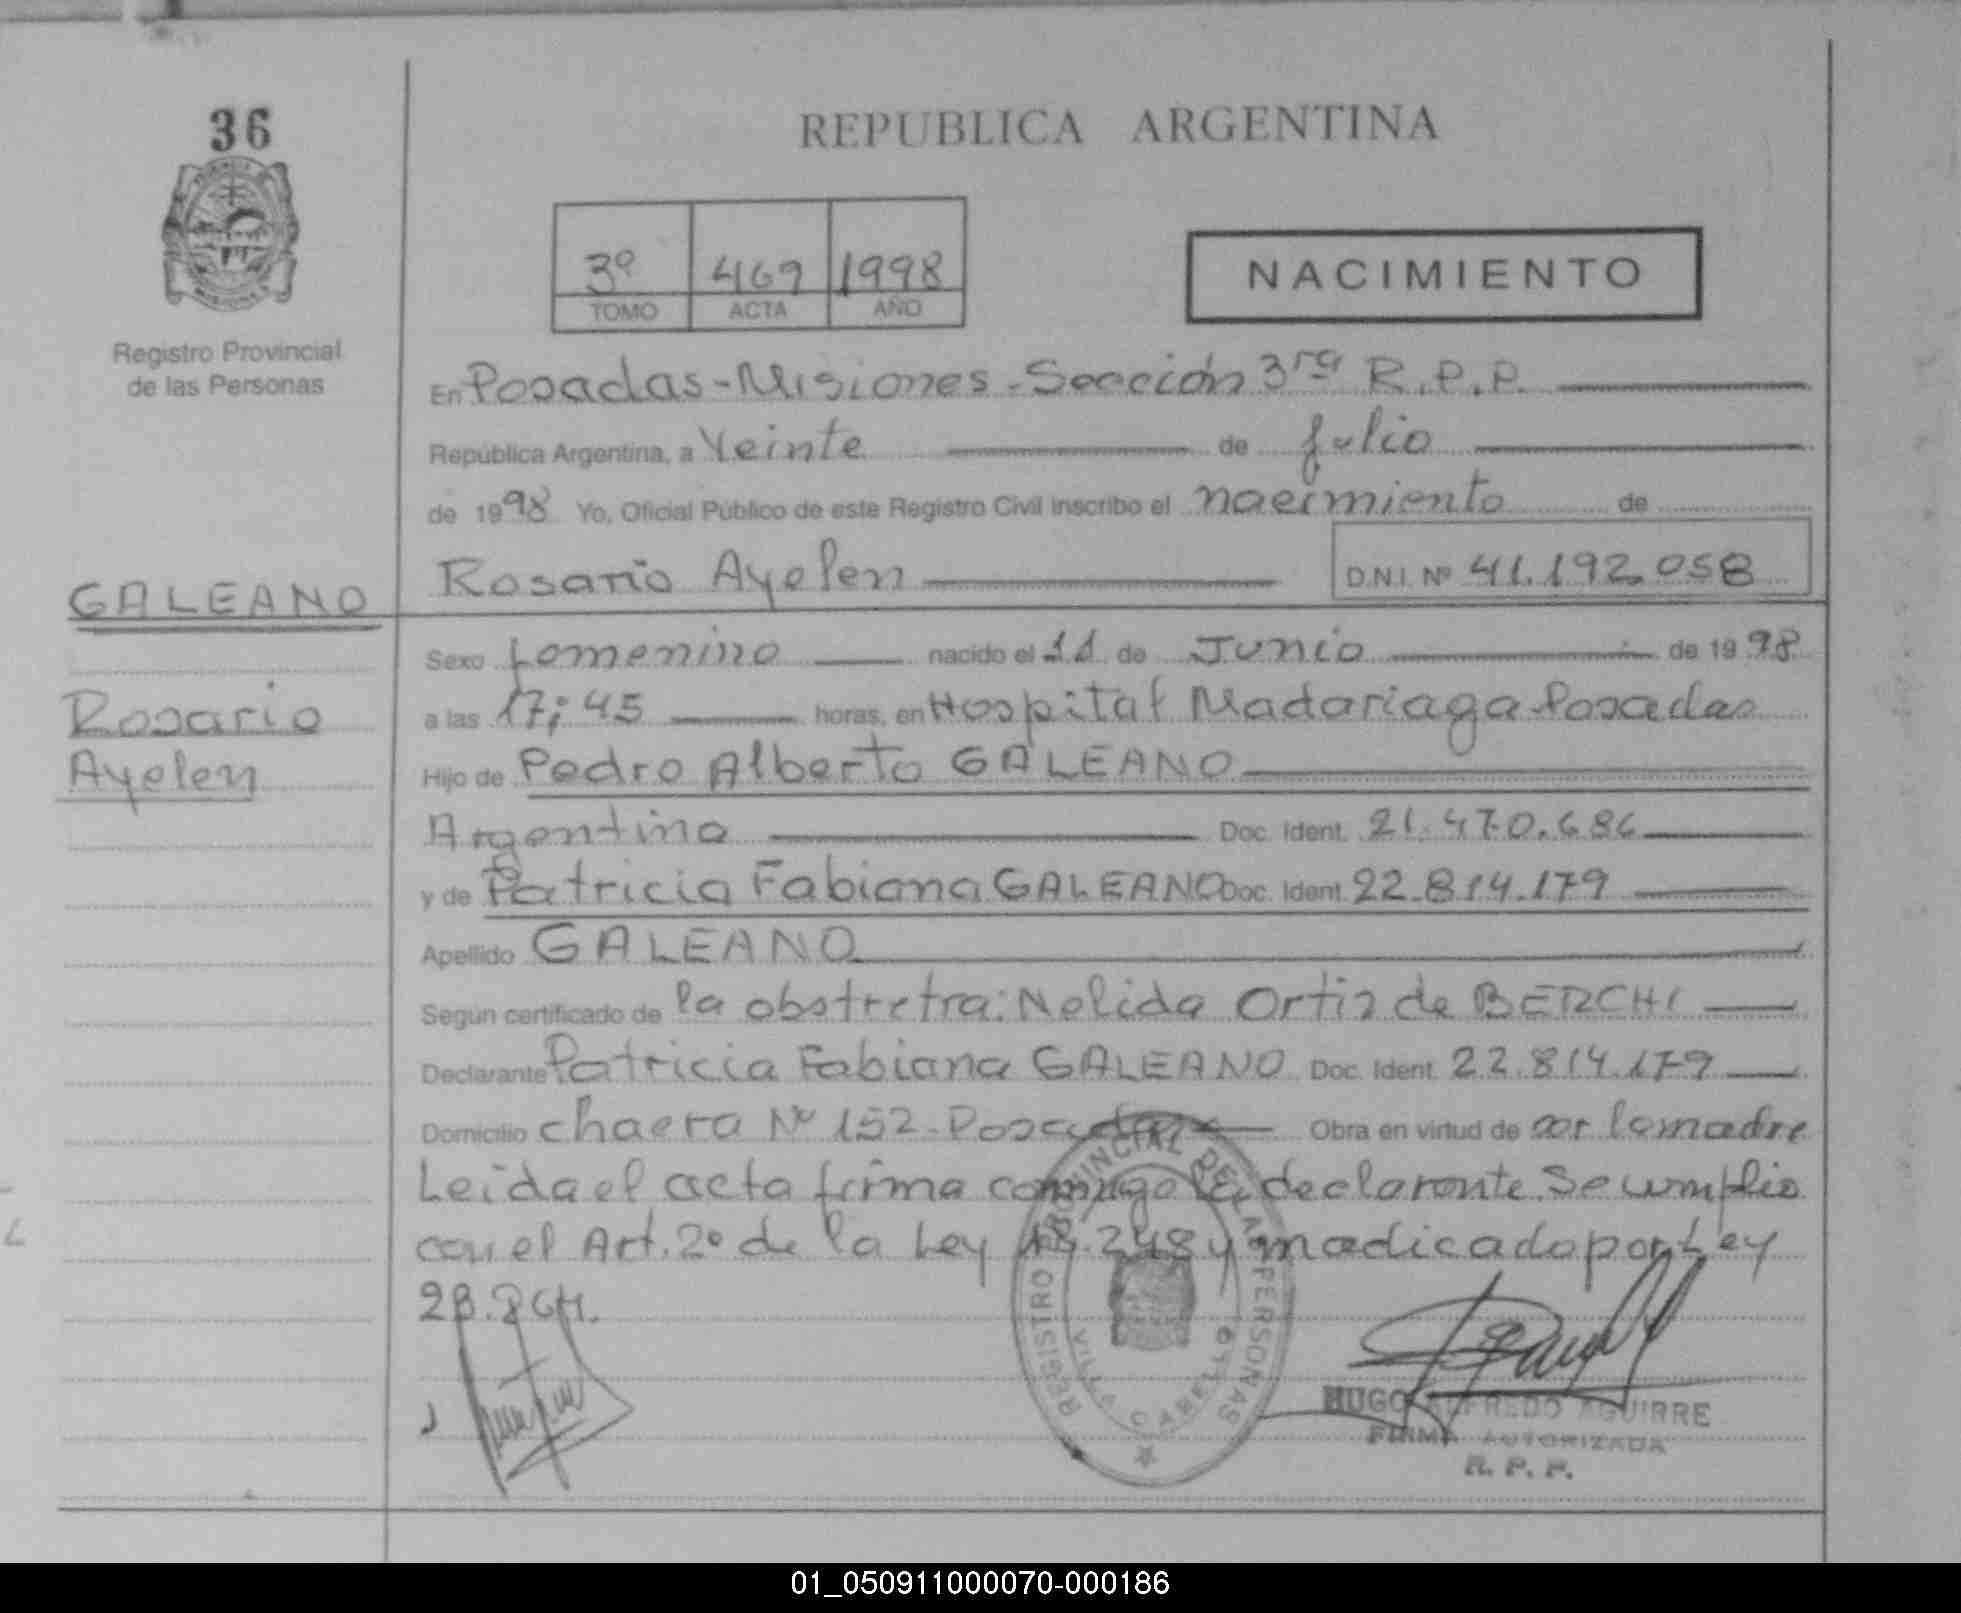 36
REPUBLICA ARGENTINA
3º 469 1998
TOMO ACTA AÑO
NACIMIENTO
Registro Provincial
de las Personas
En Posadas-Misiones-Sección 3ra R.P.P.
República Argentina, a Veinte de julio
de 1998 Yo, Oficial Público de este Registro Civil inscribo el nacimiento de
Rosario Ayelen D.N.I. Nº 41.192.058
GALEANO
Rosario
Ayelen
Sexo femenino nacido el 11 de Junio de 1998
a las 17:45 horas, en Hospital Madariaga-Posadas
Hijo de Pedro Alberto GALEANO
Argentina Doc. Ident. 21.470.686
y de Patricia Fabiana GALEANO Doc. Ident. 22.814.179
Apellido GALEANO
Según certificado de la obstretra: Nelida Ortiz de BERCHI
Declarante Patricia Fabiana GALEANO Doc. Ident. 22.814.179
Domicilio chacra Nº 152-Posadas Obra en virtud de ser la madre
Leida el acta firma conmigo la declarante. Se cumplio
con el Art. 2º de la Ley 18.248 y modicado por Ley
REGISTRO PROVINCIAL DE LAS PERSONAS
VILLA CABELLO
HUGO ALFREDO AGUIRRE
FIRMA AUTORIZADA
R. P. P.
01_050911000070-000186